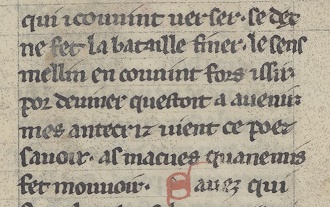 qui i couuint uerser · se dex
ne fet la bataille finer · le sens
mellin en couuint fors issir
por deuiner questoit a auenir
mes antecriz uient ce poez
sauoir · as macues quanemis
fet mouuoir · Sauez qui